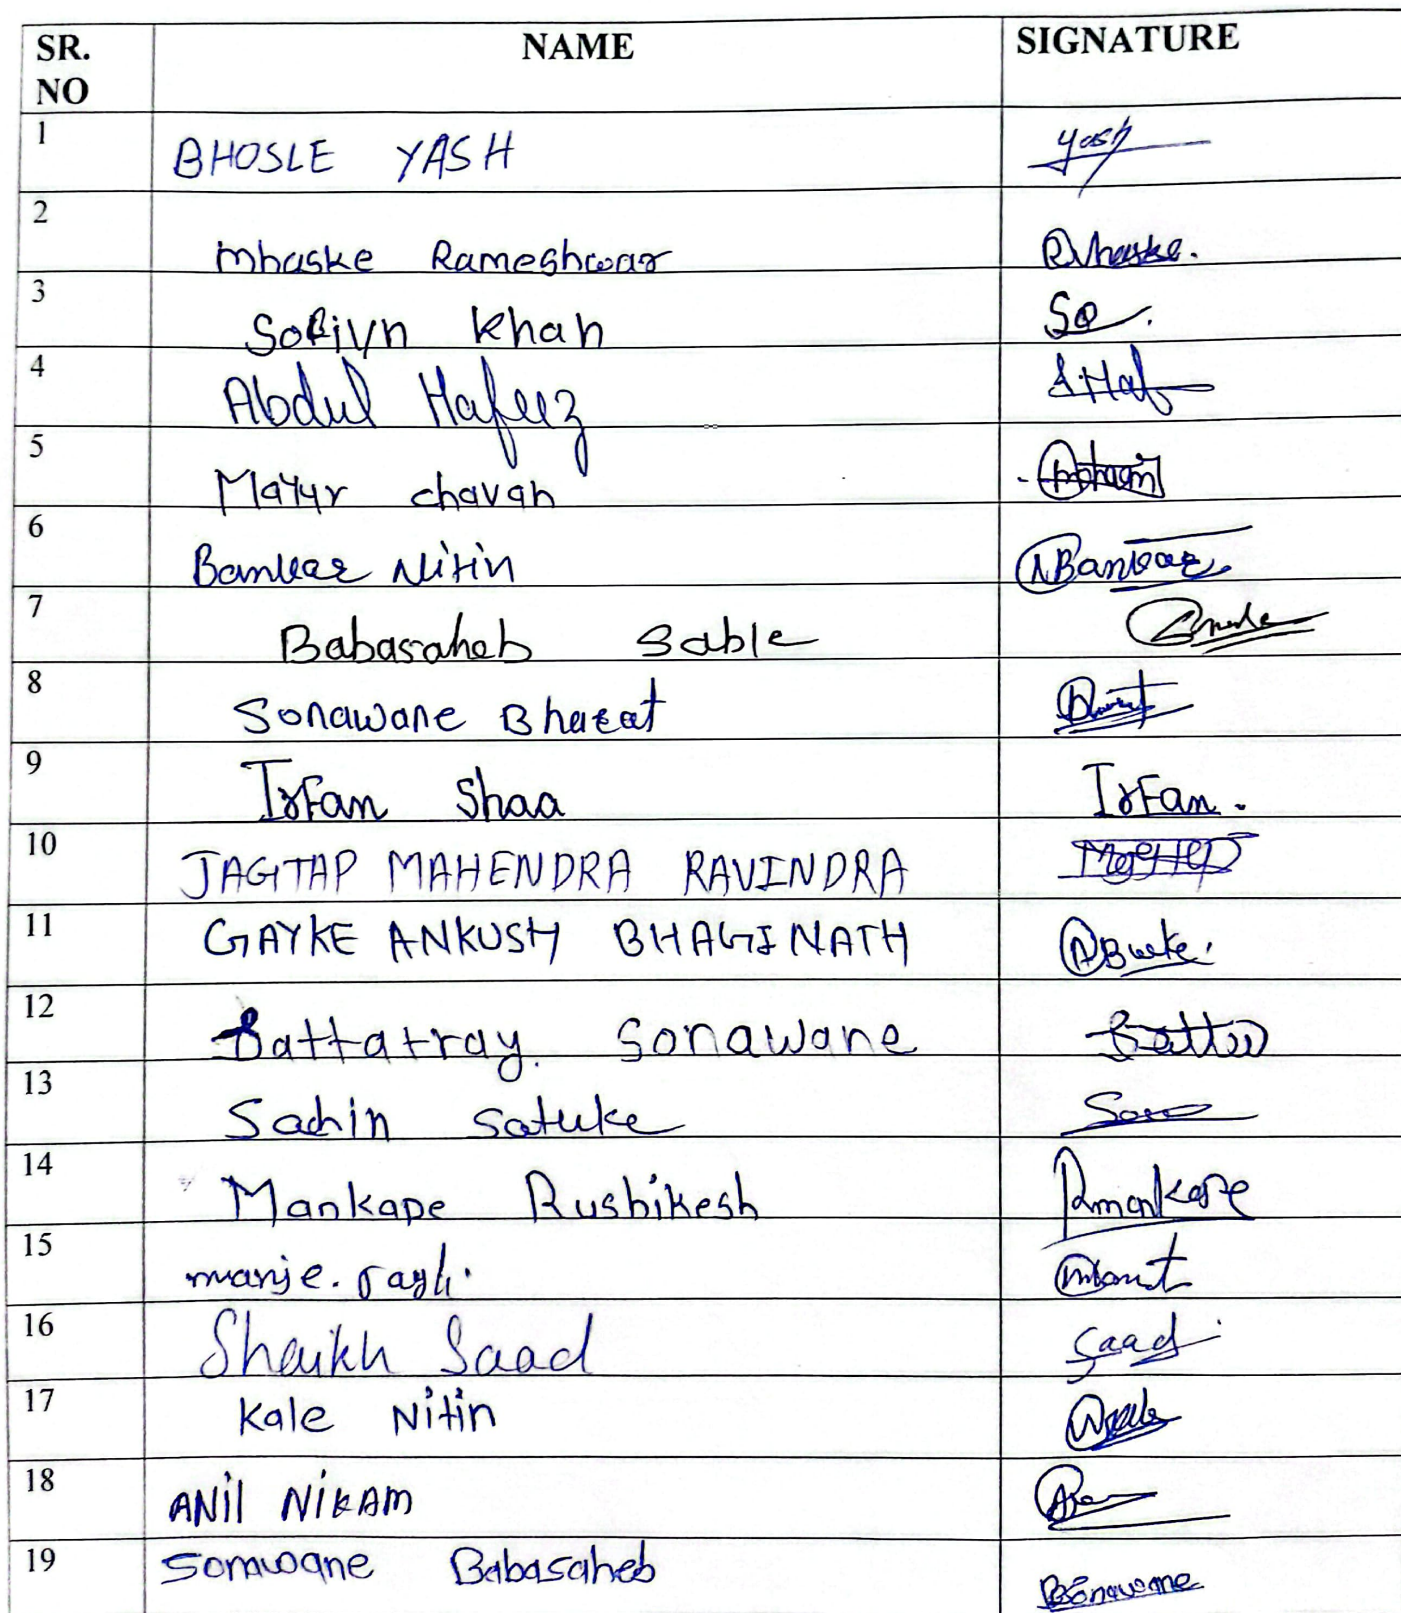 SR. NO NAME SIGNATURE
1 BHOSLE YASH yash
2 Mhaske Rameshwar Rmhaske.
3 Sofiyn Khan So
4 Abdul Hafeez A.Haf
5 Mayur chavan
6 Bankar Nitin NBankar
7 Babasaheb Sable
8 Sonawane Bharat
9 Irfan Shaa Irfan.
10 JAGTAP MAHENDRA RAVINDRA
11 GAYKE ANKUSH BHAGINATH
12 Dattatray. Sonawane
13 Sachin Satuke
14 Mankape Rushikesh Rmankape
15 manje.
16 Shaikh Saad Saad
17 Kale Nitin
18 ANil NikAm
19 Sonawane Babasaheb BSonawane